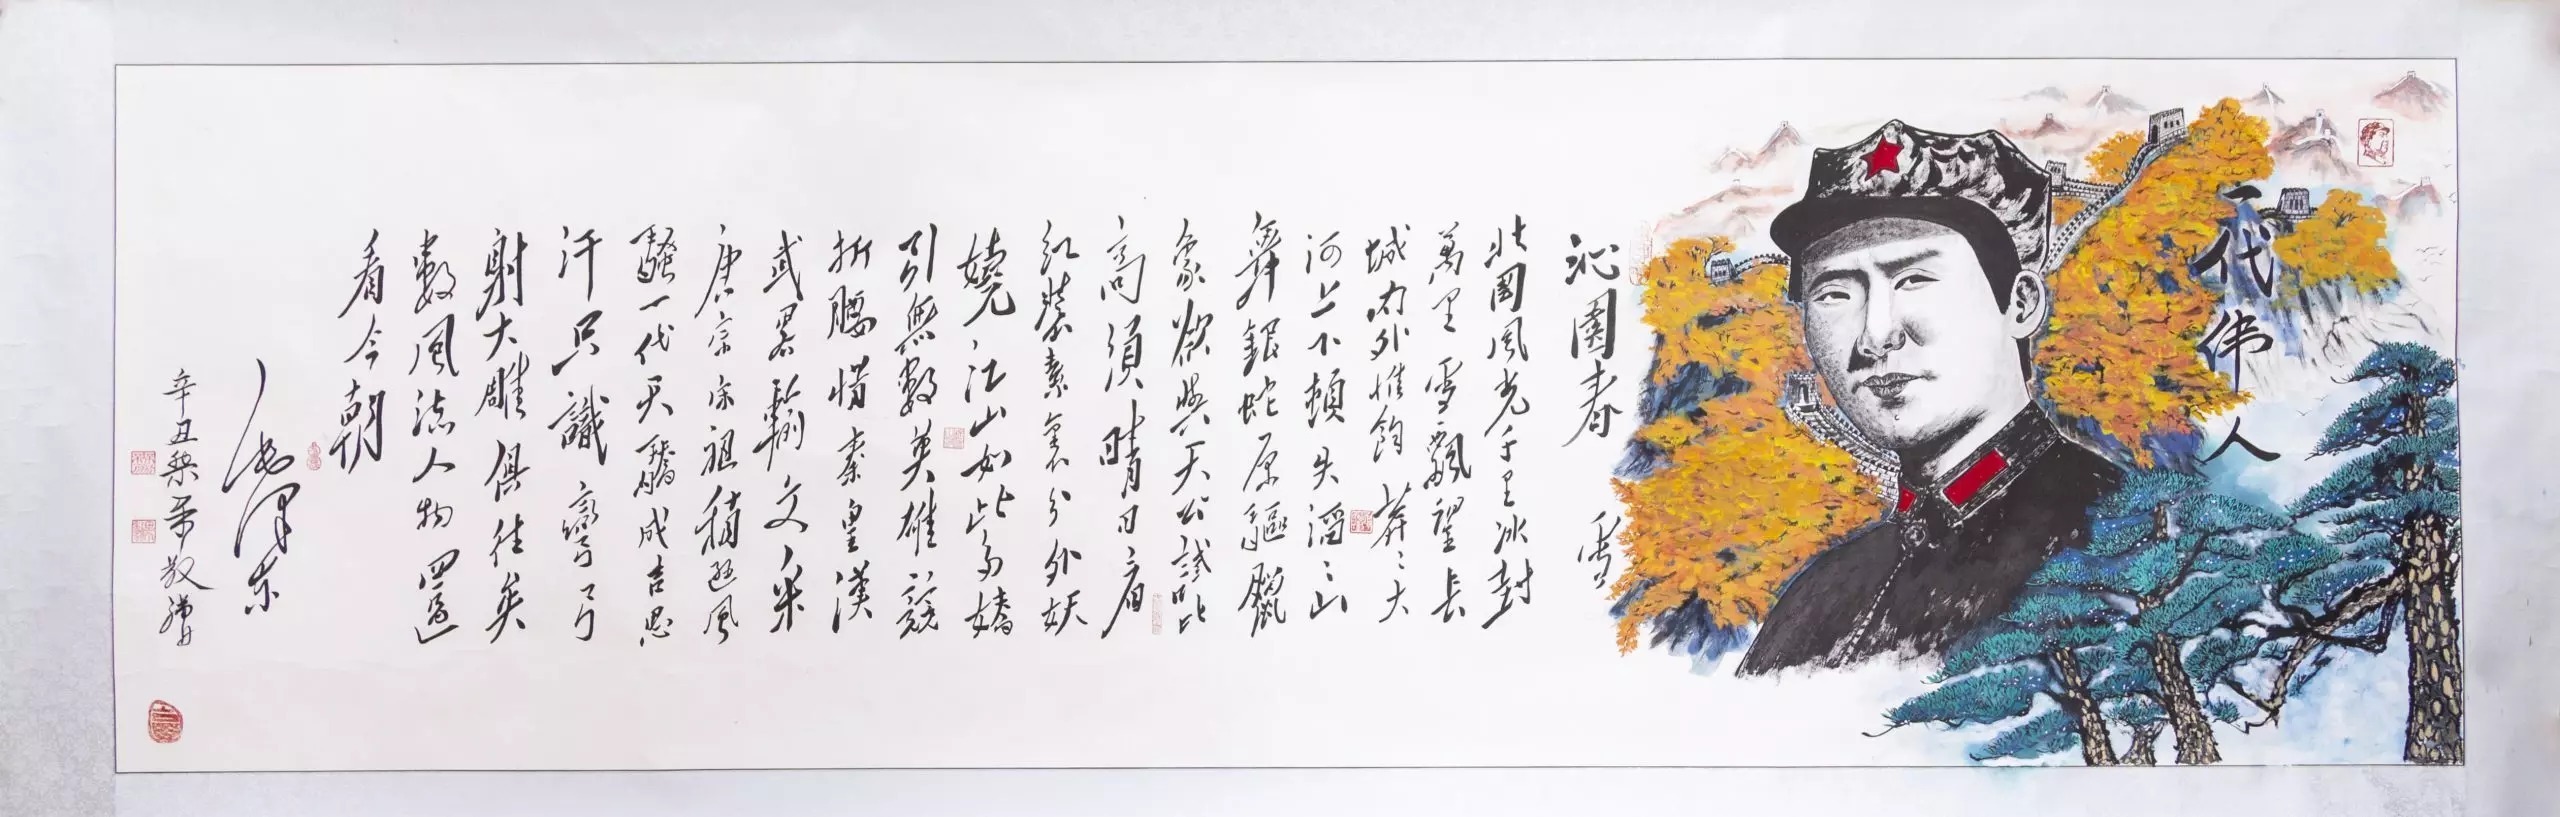 一代伟人
沁園春 雪
北國風光千里冰封
萬里雪飄望長
城內外惟餘莽〻大
河上下頓失滔〻山
舞銀蛇原驅臘
象欲與天公試比
高須晴日看
紅裝素裹分外妖
嬈江山如此多嬌
引無數英雄競
折腰惜秦皇漢
武略輸文采
唐宗宋祖稍遜風
騷一代天驕成吉思
汗只識彎弓
射大雕俱往矣
數風流人物還
看今朝
毛澤東
辛丑